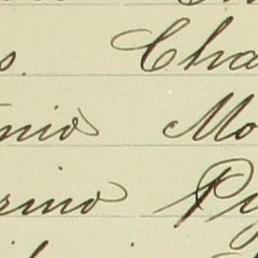 s. Cha
nio Mo
rino Py